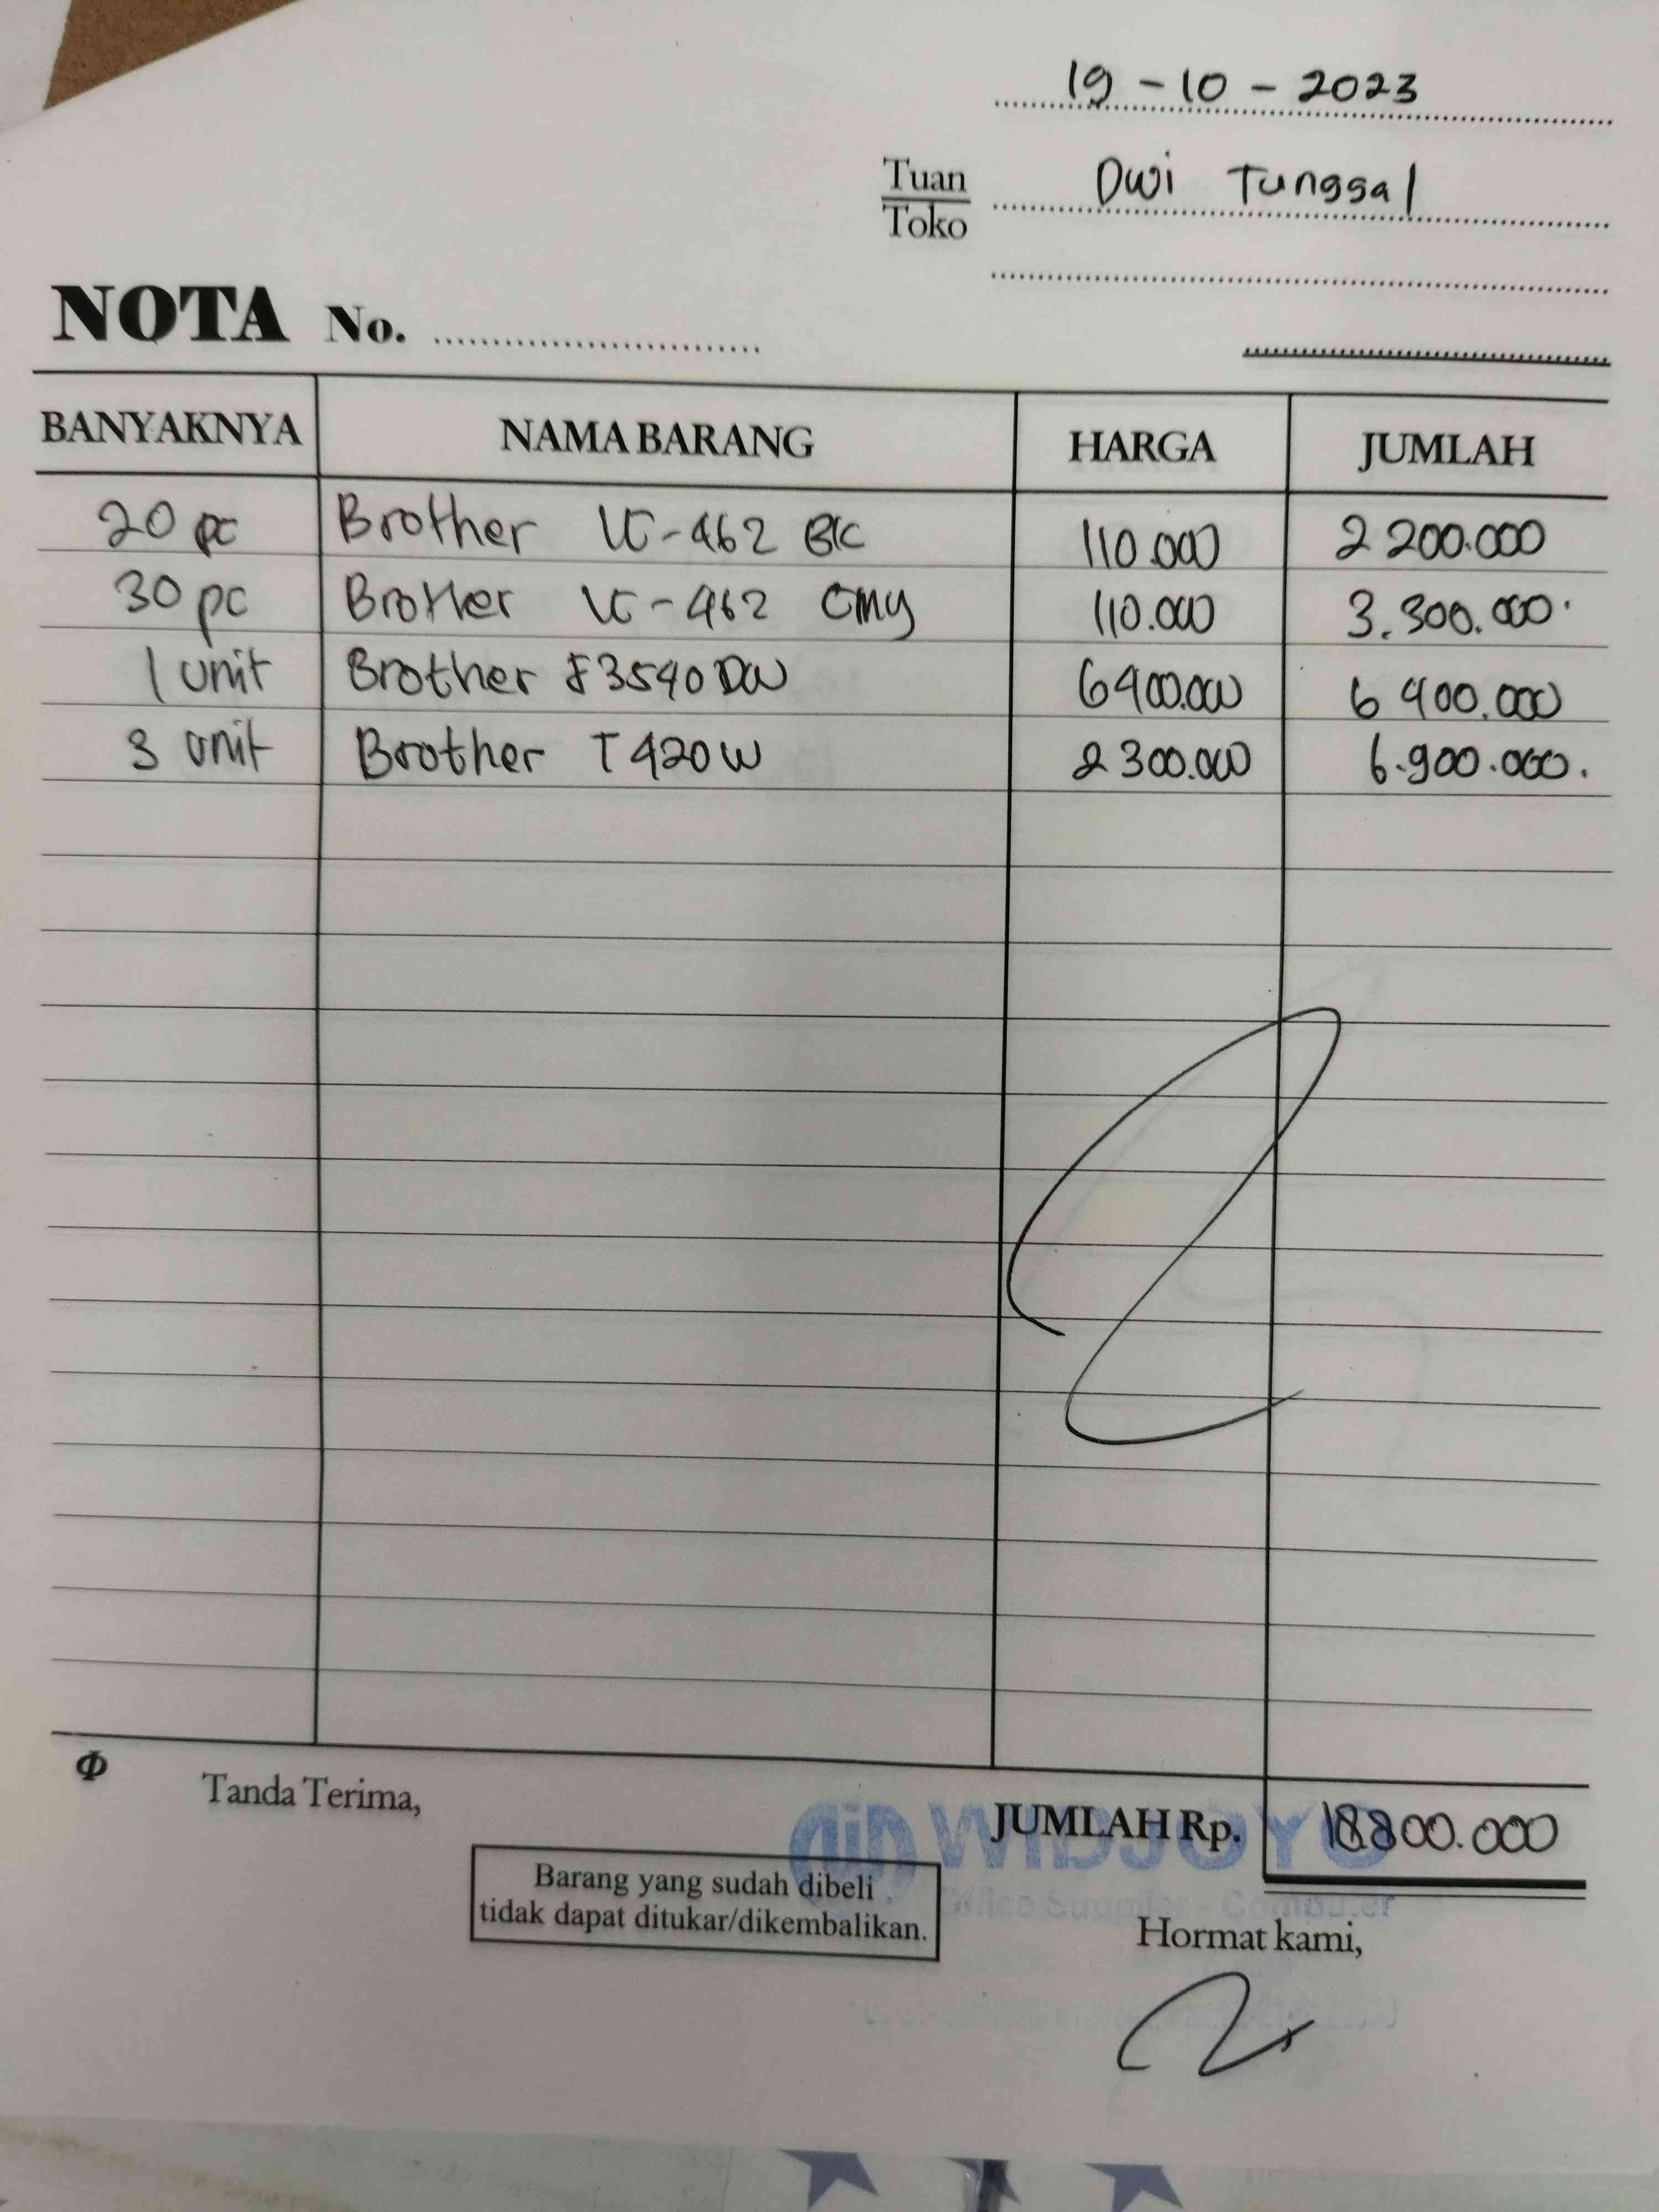 19 - 10 - 2023
Tuan
Toko
Dwi Tunggal
NOTA No.
BANYAKNYA NAMA BARANG HARGA JUMLAH
20 pc Brother LC-462 BK 110.000 2 200.000
30 pc Brother LC-462 CMY 110.000 3.300.000
1 unit Brother J3540DW 6400.000 6 400.000
3 unit Brother T420W 2 300.000 6.900.000.
Tanda Terima,
JUMLAH Rp. 18.800.000
WIDJOYO
Office Supplier - Computer
Barang yang sudah dibeli
tidak dapat ditukar/dikembalikan.
Hormat kami,